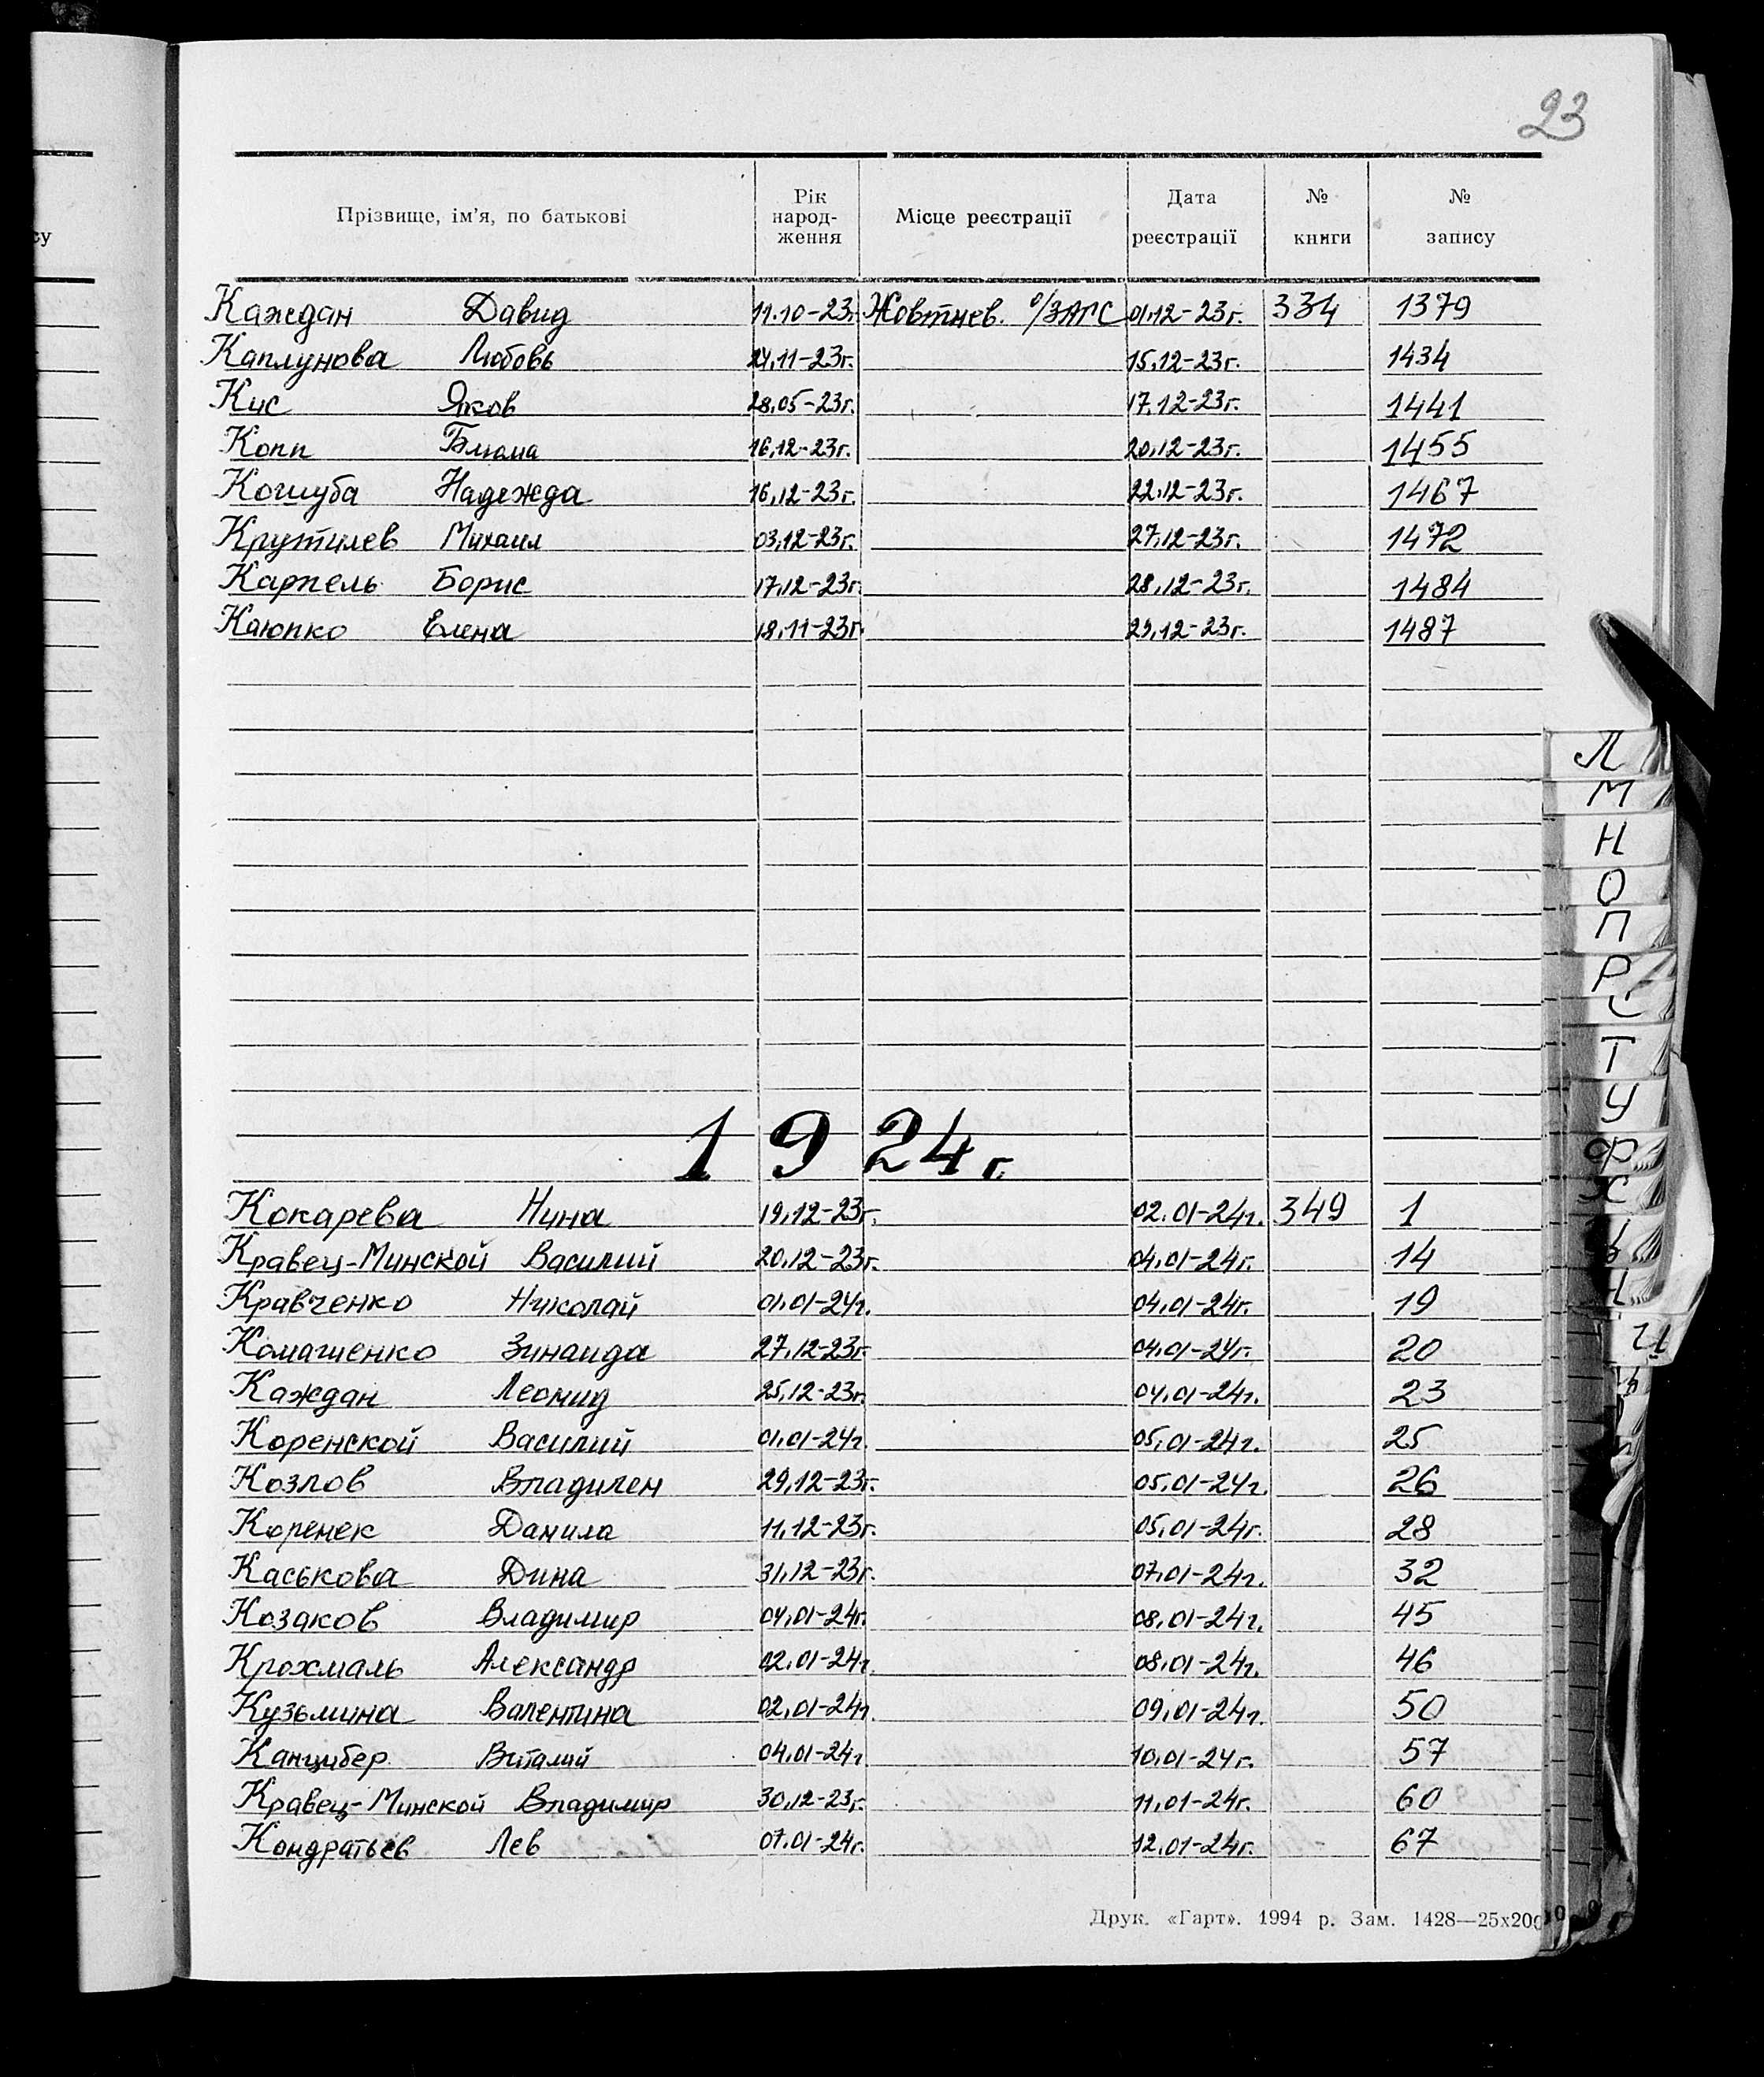 23
су
Прізвище, ім'я, по батькові Рік народ-ження Місце реєстрації Дата реєстрації № книги № запису
Каждан Давид 11.10-23г. Жовтнев. о/ЗАГС 01.12-23г. 334 1379
Каплунова Любовь 24.11-23г. 15.12-23г. 1434
Кис Яков 28.05-23г. 17.12-23г. 1441
Копп Блюма 16.12-23г. 20.12-23г. 1455
Кошуба Надежда 16.12-23г. 22.12-23г. 1467
Крутилев Михаил 03.12-23г. 27.12-23г. 1472
Карпель Борис 17.12-23г. 28.12-23г. 1484
Каюпко Елена 18.11-23г. 29.12-23г. 1487
1924г.
Кокарева Нина 19.12-23г. 02.01-24г. 349 1
Кравец-Минской Василий 20.12-23г. 04.01-24г. 14
Кравченко Николай 01.01-24г. 04.01-24г. 19
Комашенко Зинаида 27.12-23г. 04.01-24г. 20
Каждан Леонид 25.12-23г. 04.01-24г. 23
Коренской Василий 01.01-24г. 05.01-24г. 25
Козлов Владилен 29.12-23г. 05.01-24г. 26
Коренек Данила 11.12-23г. 05.01-24г. 28
Каськова Дина 31.12-23г. 07.01-24г. 32
Козаков Владимир 04.01-24г. 08.01-24г. 45
Крохмаль Александр 02.01-24г. 08.01-24г. 46
Кузьмина Валентина 02.01-24г. 09.01-24г. 50
Канцибер Виталий 04.01-24г. 10.01-24г. 57
Кравец-Минской Владимир 30.12-23г. 11.01-24г. 60
Кондратьев Лев 07.01-24г. 12.01-24г. 67
Друк. «Гарт». 1994 р. Зам. 1428—25х200
Л
М
Н
О
П
Р
С
Т
У
Ф
Х